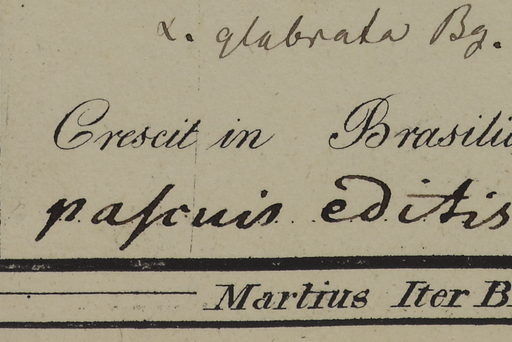 α. glabrata Bg.
Crescit in Brasilia
paſcuis editis
Martius Iter B